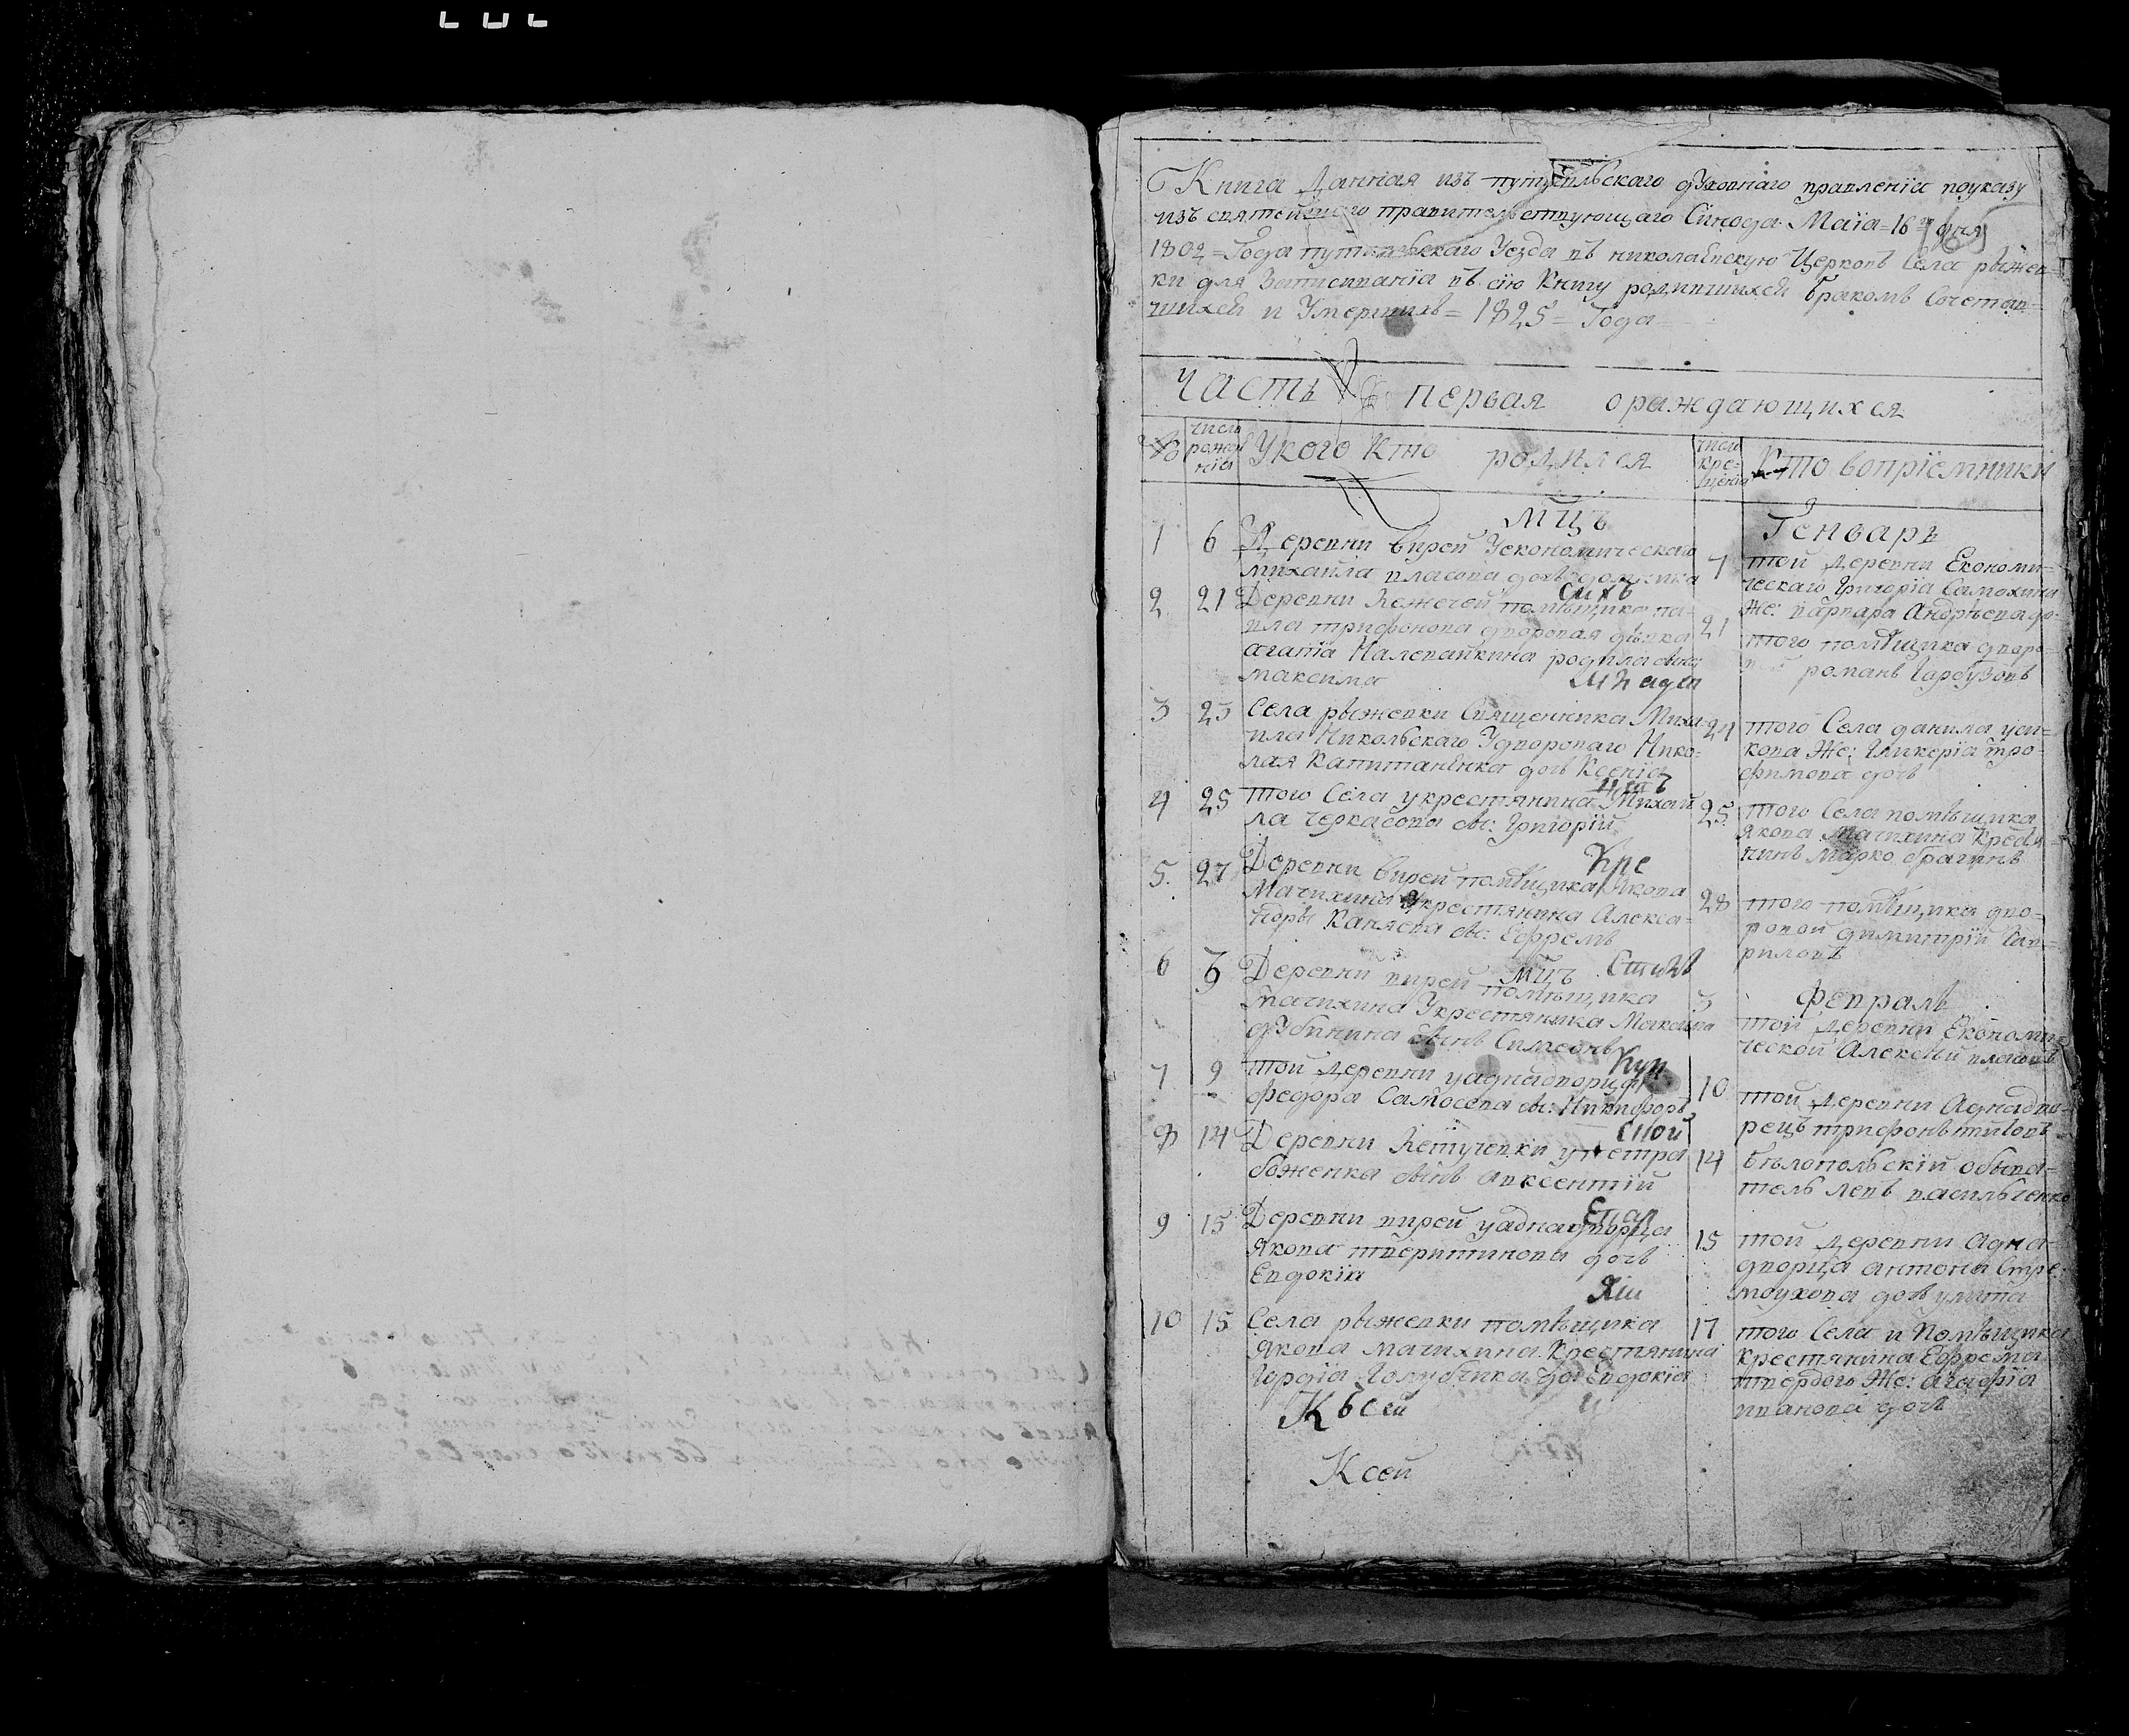 Книга Данная изъ путивльскаго духовнаго правленїя поуказу
изъ святейшаго правительствующаго Сѵнода Маїа=16= дня
1802=Года путивльскаго Уезда въ николаевскую Церковь Села рыжев=
ки для Записыванїа въ сїю Книгу родившихся бракомъ Сочетав=
шихся и Умершихъ=1825=Года=
Часть первая ораждающихся
№
число рожденїа
Укого Кто родился
число крещенїа
Кто воприемники
Мцъ Генварь
1 6 Деревни вирей Уекономическаго
михаила власова дочь домника
7 той деревни Економи=
ческаго Григорїа Самохина
же: варвара Андрѣева до:
2 21 Деревни помѣщика па=
вла трифонова дворовая дѣвка
агатїа Наливайкина родила сына
максима
21 того помѣщика дворо=
романъ Гарбузовъ
3 23 Села рыжевки Священника Миха=
ила Никольскаго Удворового Нико=
лая Капитаненка дочь Ксенїа
24 того Села данила уси=
кова Же: Гликерїа тро=
фимова дочь
4 25 того Села укрестянина Михай
ла черкасова сы: Григорїй
25 того Села помѣщика
якова Мачихина Крестя=
нинъ Марко брагинъ
5. 27 Деревни вирей помѣщика Якова
Мачихина Укрестянина Алекса=
ндры сы: Ефремъ
28 того помѣщика дво=
ровой димитрїй Гав=
риловъ
Мцъ Февраль
6 3 Деревни вирей помѣщика
Мачихина Укрестянина Максима
дубинина сынъ Симеонъ
3 той деревни Економи=
ческой Алексѣй власовъ
7 9 той деревни уаднадворца
федора Самосева сы: Никифоръ
10 той деревни Аднадво=
рецъ трифонъ титовъ
8 14 Деревни упетра
боженка сынъ авксентїй
14 бѣлопольскїй обыва=
тель левъ василченко
9 15 Деревни вирей уаднадворца
якова твереитинова дочь
Евдокїа
15 той деревни адна=
дворца антона Стре=
моухова дочь улита
10 15 Села рыжевки помѣщика
якова мачихина Крестянина
Гордїа Голубчика дочь Евдокїа
17 того Села и Помѣщика
Крестянина Ефрема
твердого Же: агафїа
иванова дочь
К всей
К сей